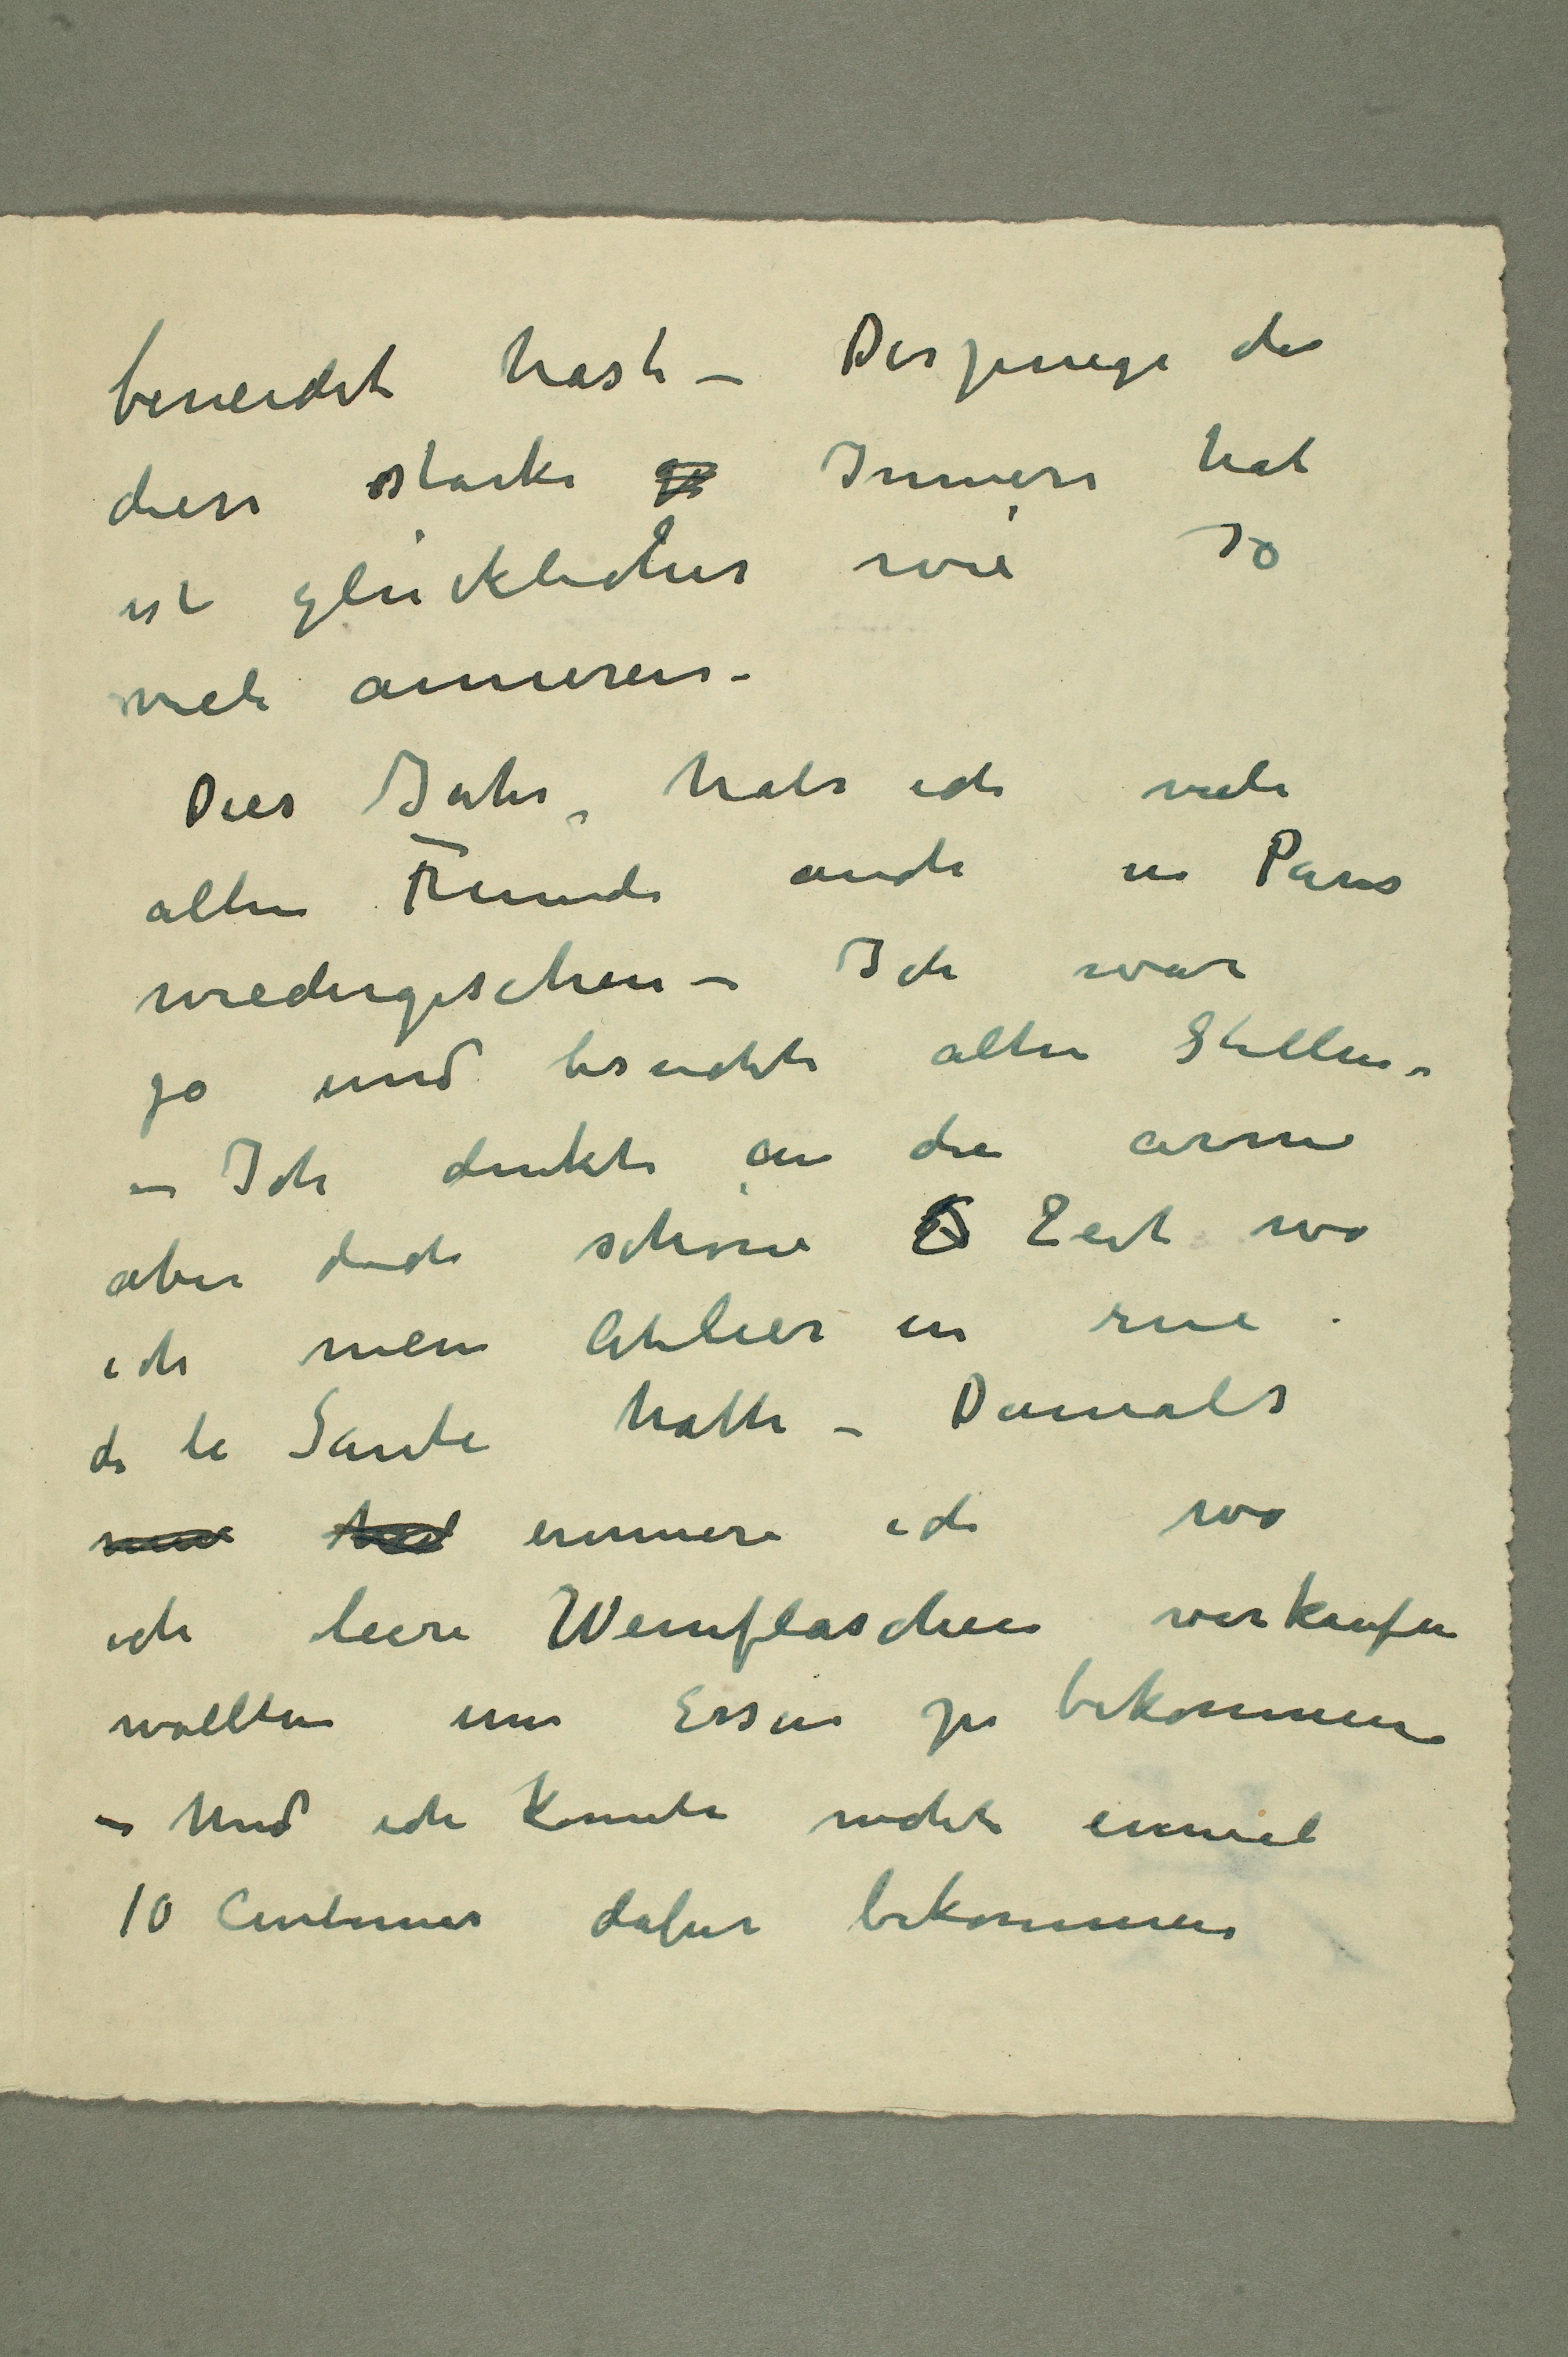 beneidet hast – Derjenige der
diese starke Innere hat
ist glücklicher wie so
viele anneren –
Dies Jahr, habe ich viele
alten Freunde auch in Paris
wiedergesehen – Ich war
ja und besuchte alten Stellen –
– Ich denkte an die arme
aber doch schöne Zeit wo
ich mein Atelier in rue
de la Sante hatte – Damals
erinnere ich wo
ich leere Weinflaschen verkaufen
wollten um Essen zu bekommen
– Und ich konnte nicht einmal
10 Centimes dafür bekommen